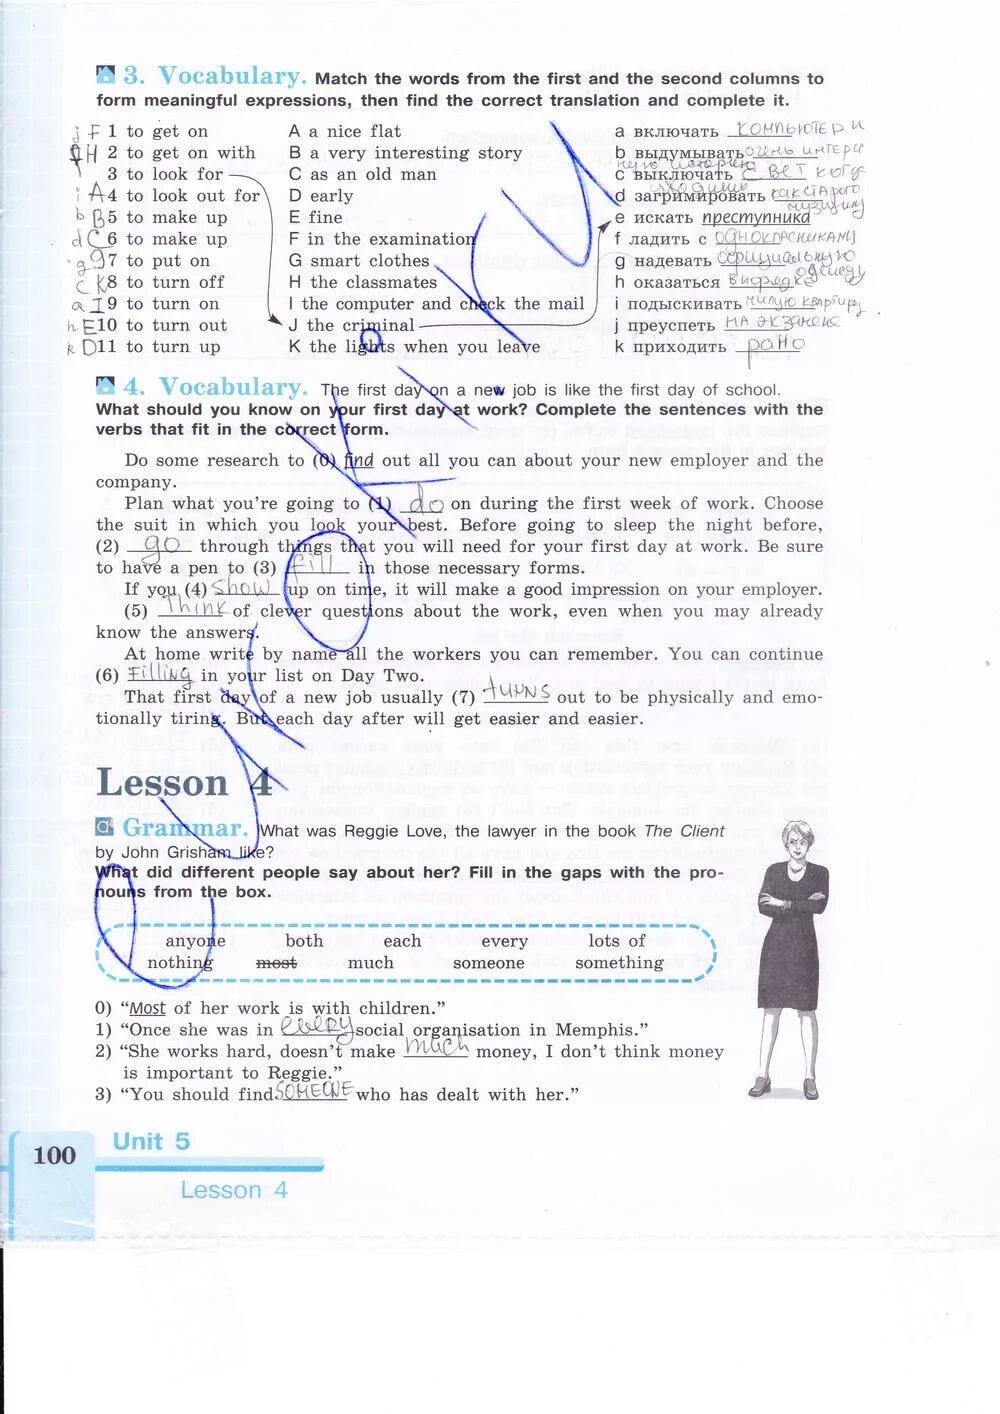 3. Vocabulary. Match the words from the first and the second columns to
form meaningful expressions, then find the correct translation and complete it.
j F 1 to get on A a nice flat a включать компьютер и
H 2 to get on with B a very interesting story b выдумывать очень интере
3 to look for C as an old man c выключать свет когда
ную историю
уходишь
i A 4 to look out for D early d загримировать как старого
мужчину
b B 5 to make up E fine e искать преступника
d C 6 to make up F in the examination f ладить с одноклассниками
g 7 to put on G smart clothes g надевать официальную
одежду
c K 8 to turn off H the classmates h оказаться
a I 9 to turn on I the computer and check the mail i подыскивать милую квартиру
h E 10 to turn out J the criminal j преуспеть на экзамене
k D 11 to turn up K the lights when you leave k приходить рано
4. Vocabulary. The first day on a new job is like the first day of school.
What should you know on your first day at work? Complete the sentences with the
verbs that fit in the correct form.
Do some research to (0) find out all you can about your new employer and the
company.
Plan what you're going to (1) do on during the first week of work. Choose
the suit in which you look your best. Before going to sleep the night before,
(2) go through things that you will need for your first day at work. Be sure
to have a pen to (3) fill in those necessary forms.
If you (4) show up on time, it will make a good impression on your employer.
(5) Think of clever questions about the work, even when you may already
know the answers.
At home write by name all the workers you can remember. You can continue
(6) filling in your list on Day Two.
That first day of a new job usually (7) turns out to be physically and emo-
tionally tiring. But each day after will get easier and easier.
Lesson 4
Grammar. What was Reggie Love, the lawyer in the book The Client
by John Grisham like?
What did different people say about her? Fill in the gaps with the pro-
nouns from the box.
anyone both each every lots of
nothing most much someone something
0) "Most of her work is with children."
1) "Once she was in every social organisation in Memphis."
2) "She works hard, doesn't make much money, I don't think money
is important to Reggie."
3) "You should find someone who has dealt with her."
100
Unit 5
Lesson 4